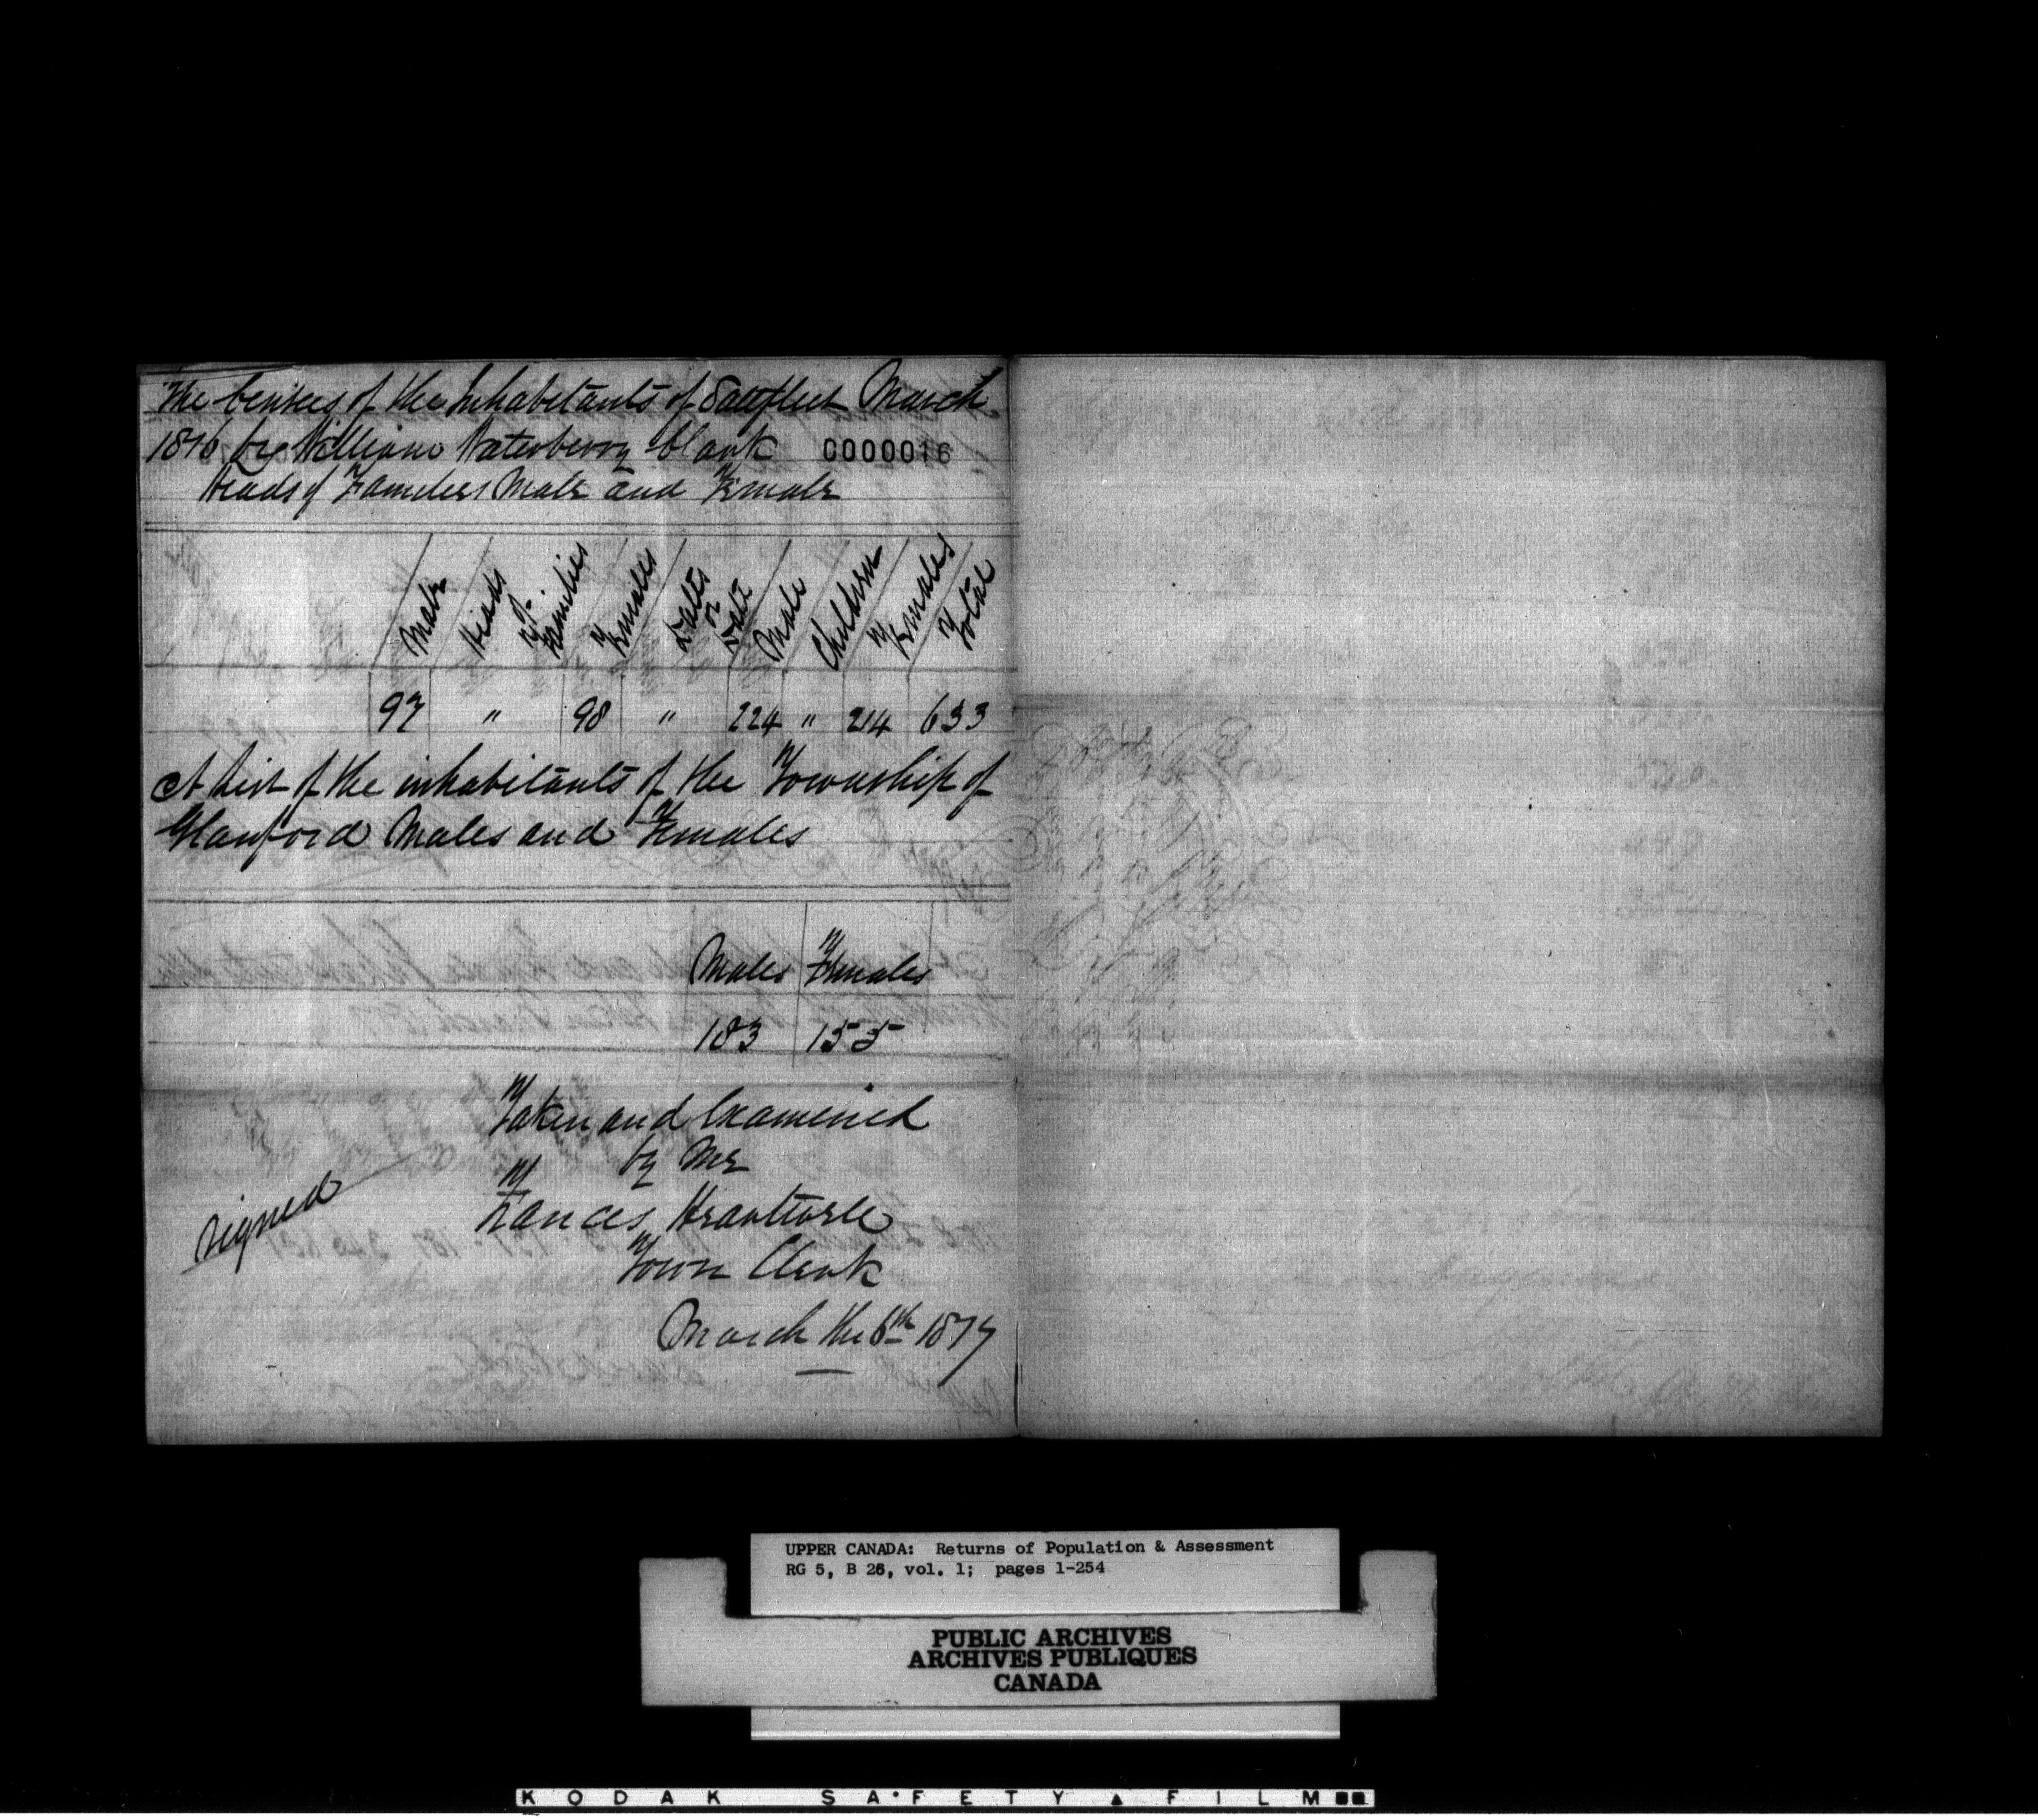 The Census of the Inhabitants of Saltfleet March
1816 by William Waterberry Clark C000016
Heads of Families Male and Female
Male Heads of Families Females Male Children Females Total
97 " 98 " 224 " 214 633
A List of the inhabitants of the Township of
Glanford Males and Females
Males Females
183 155
Taken and Examined
by Me
signed
Town Clerk
March the 6th 1817
UPPER CANADA: Returns of Population & Assessment
RG 5, B 26, vol. 1; pages 1-254
PUBLIC ARCHIVES
ARCHIVES PUBLIQUES
CANADA
KODAK SA·FETY ▲ FILM